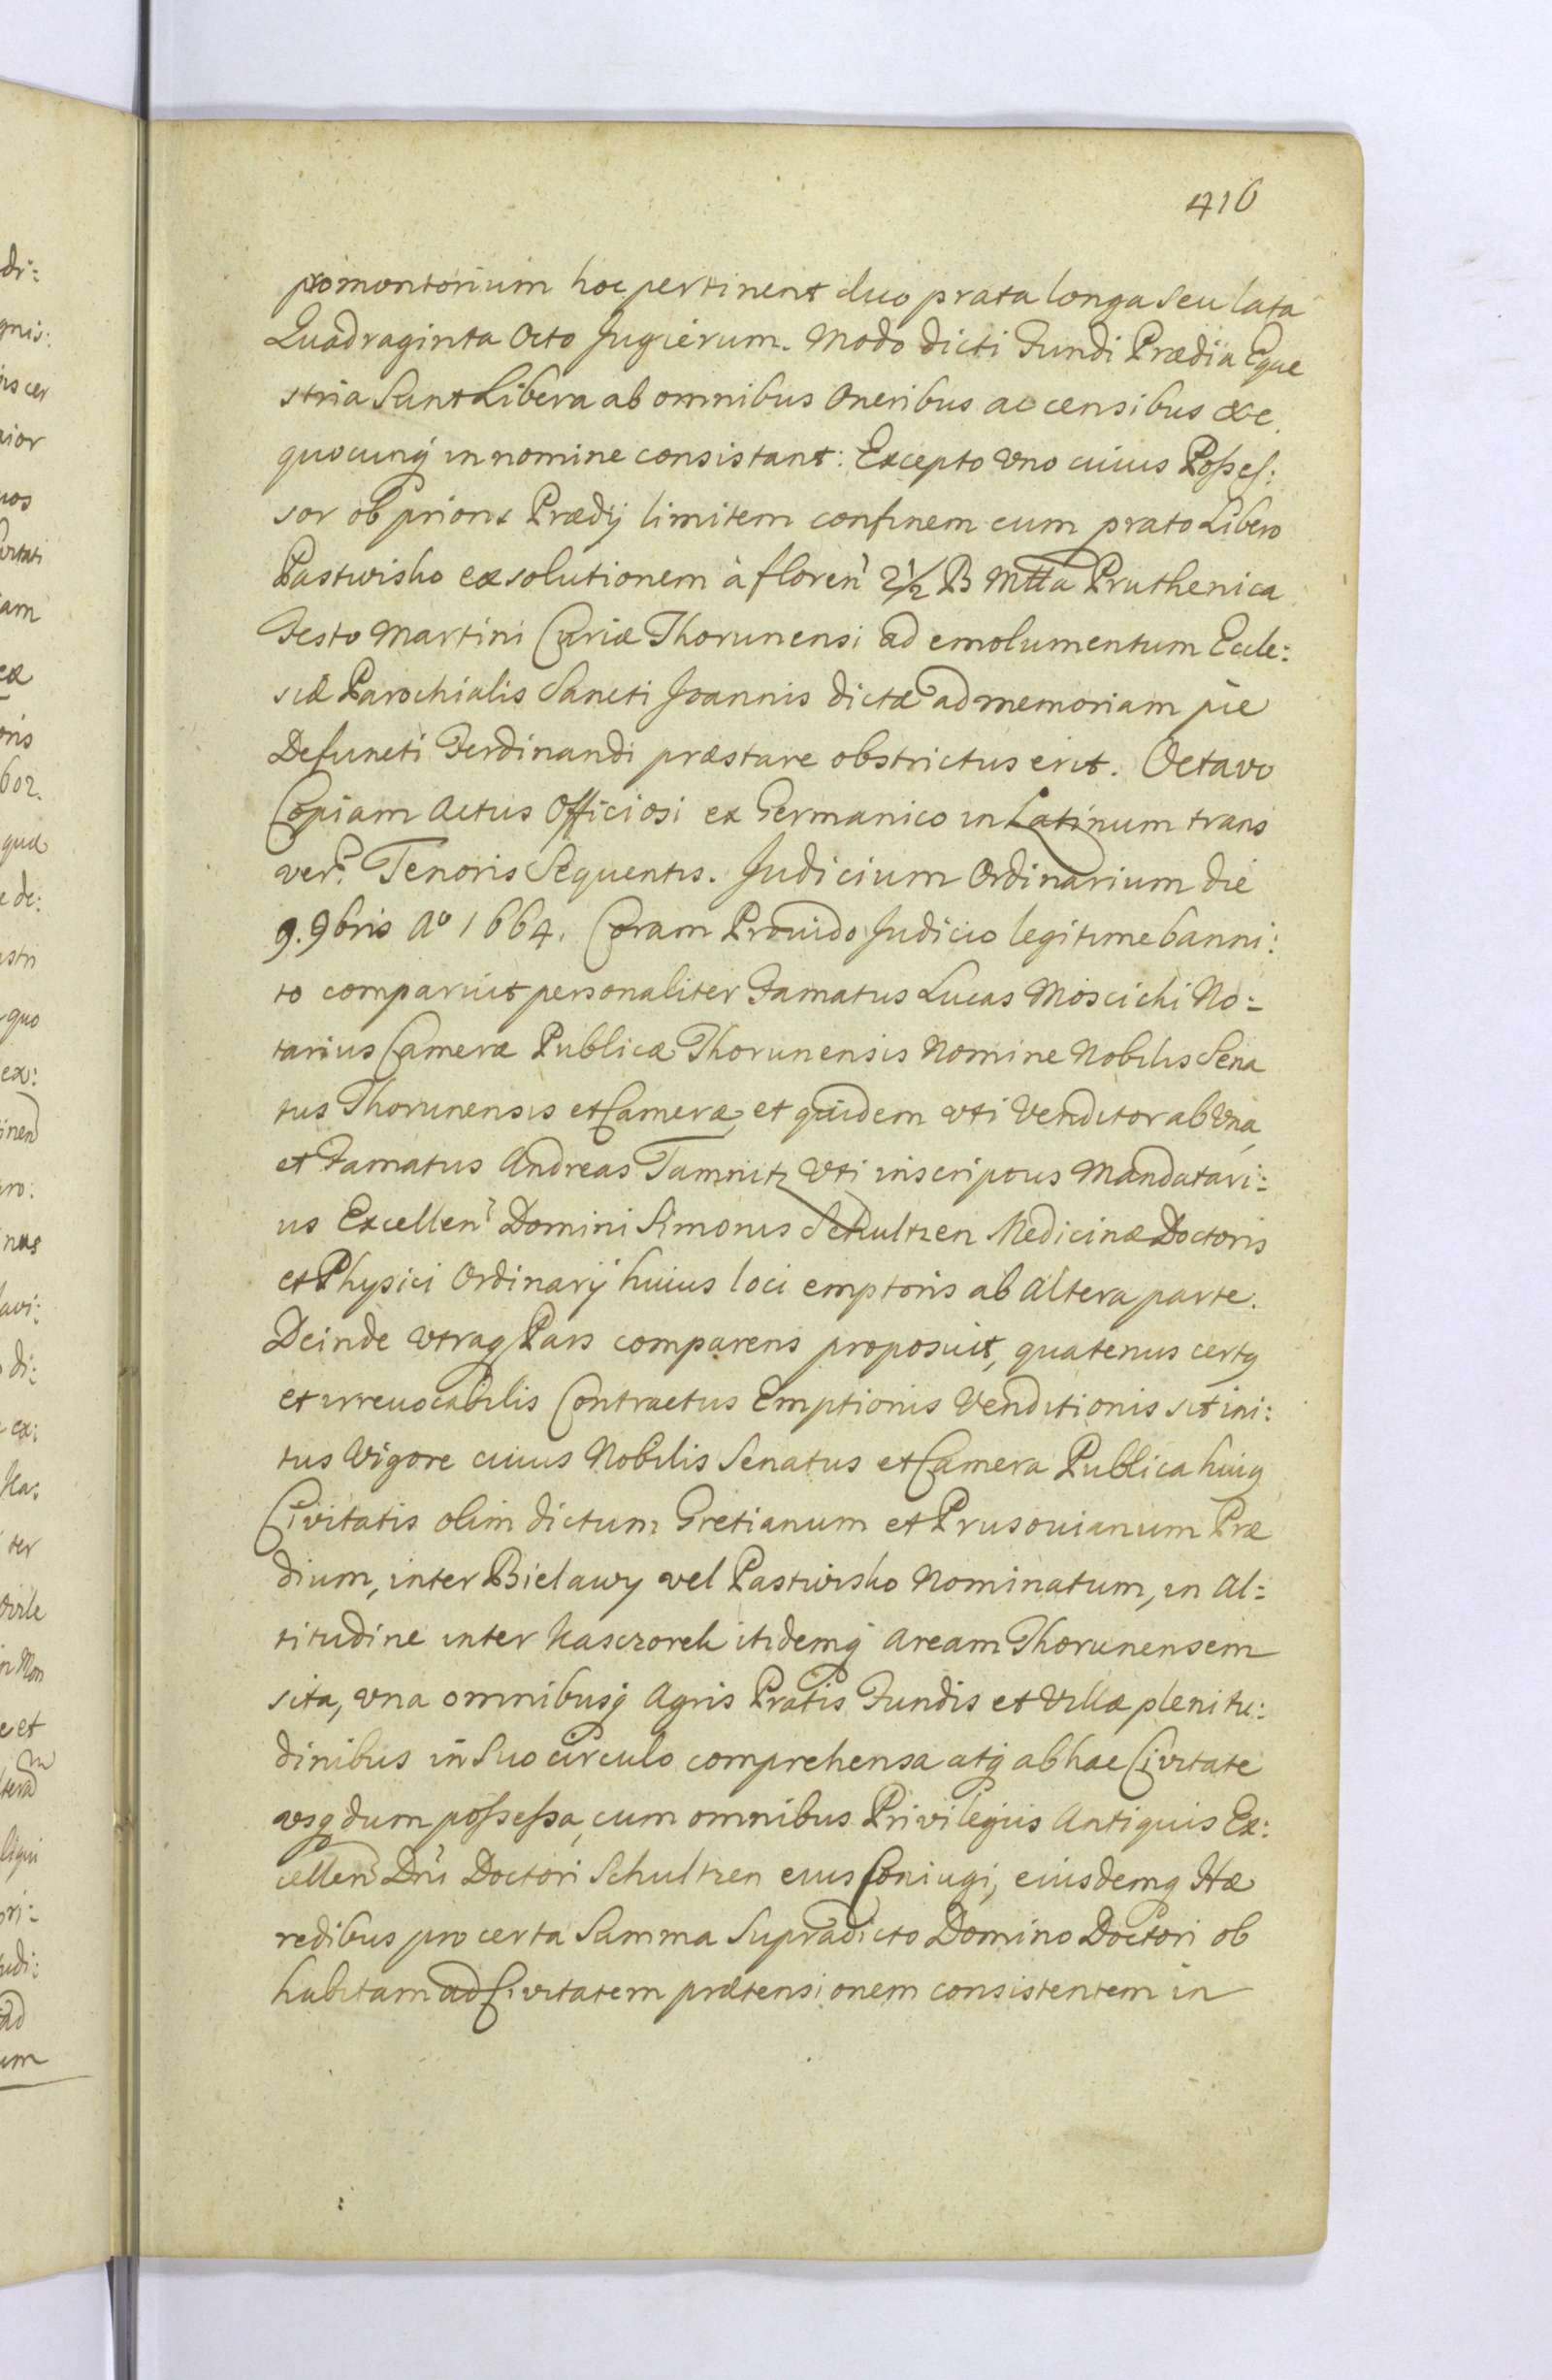 416
promontorium hoc pertinent duo prata longa seu lata
Quadraginta Octo Jugierum. Modo dicti Fundi Prædia Eque
stria sunt Libera ab omnibus Oneribus ac censibus &c.
quocunq̃ in nomine consistant: Excepto Vno cuius Posses:
sor ob prioris Prædij limitem confinem cum prato Libero
Pastwisko exsolutionem à floren 2½ B Mtta Pruthenica
Festo Martini Curiæ Thorunensi ad emolumentum Eccle:
siæ Parochialis Sancti Joannis dictæ ad memoriam pie
Defuncti Ferdinandi præstare obstrictus erit. Octavo
Copiam Actus Officiosi ex Germanico in Latinum trans
ver. Tenoris Sequentis. Judicium Ordinarium die
9. 9bris Aº 1664. Coram Prouido Judicio legitime banni:
to comparuit personaliter Famatus Lucas Moscicki No=
tarius Cameræ Publicæ Thorunensis Nomine Nobilis Sena
tus Thorunensis et Cameræ, et quidem vti Venditor ab Vna,
et Famatus Andreas Tamnitz Vti inscriptus Mandatari:
us Excellen Domini Simonis Schultzen Medicinæ Doctoris
et Physici Ordinarij huius loci emptoris ab Altera parte.
Deinde Vtraq Pars comparens proposuit, quatenus certq
et irreuocabilis Contractus Emptionis Venditionis sit ini:
tus Vigore cuius Nobilis Senatus et Camera Publica huiq
Civitatis olim dictum Gretianum et Prusouianum Præ
dium, inter Bielawy vel Pastwisko Nominatum, in Al=
titudine inter Kasczorek itidemq̃ Aream Thorunensem
sita, vna omnibusq̃ Agris Pratis Fundis et Villæ plenitu:
dinibus in Suo circulo comprehensa atq̃ ab hac Civitate
vsq dum possessa, cum omnibus Privilegijs Antiquis Ex:
cellen Dni Doctori Schultzen eius Coniugi, eiusdemq Hæ
redibus pro certa Summa Supradicto Domino Doctori ob
habitam ad Civitatem prætensionem consistentem in